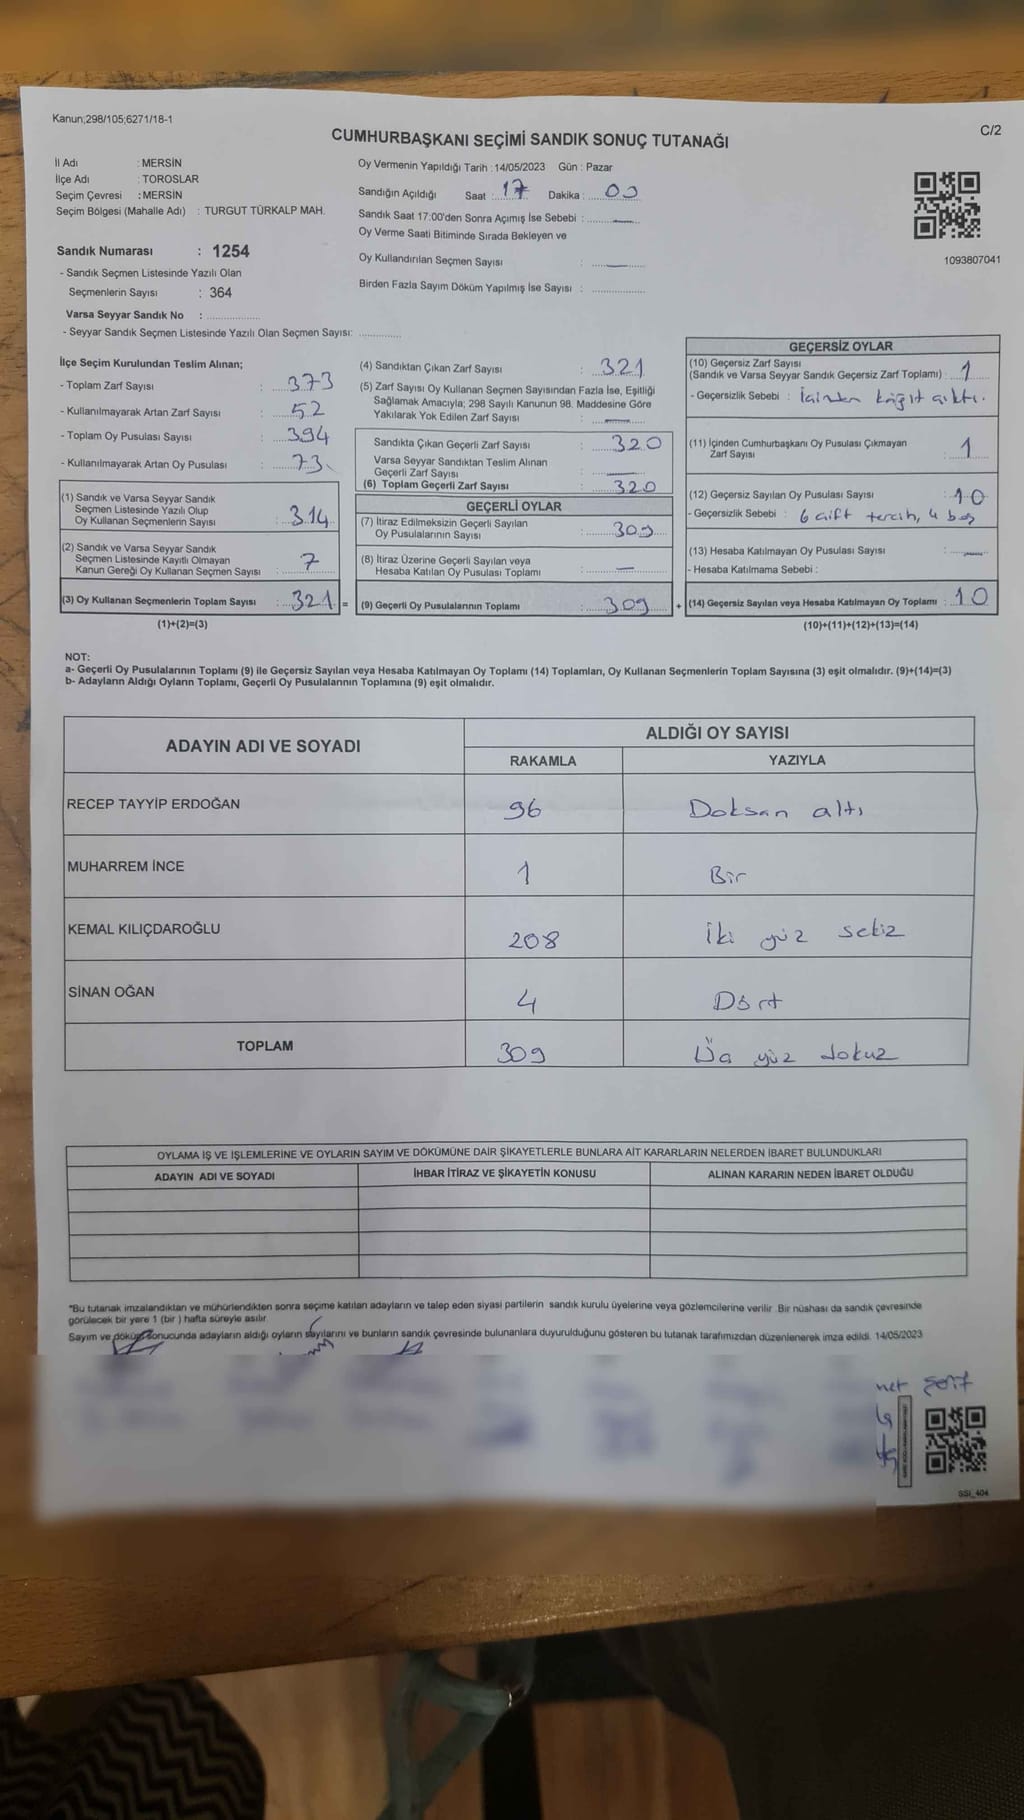 Kanun;298/105;6271/18-1
C/2
CUMHURBAŞKANI SEÇİMİ SANDIK SONUÇ TUTANAĞI
İl Adı : MERSİN
İlçe Adı : TOROSLAR
Seçim Çevresi : MERSİN
Seçim Bölgesi (Mahalle Adı) : TURGUT TÜRKALP MAH.
Sandık Numarası : 1254
- Sandık Seçmen Listesinde Yazılı Olan
Seçmenlerin Sayısı : 364
Varsa Seyyar Sandık No : ................
- Seyyar Sandık Seçmen Listesinde Yazılı Olan Seçmen Sayısı: ............
Oy Vermenin Yapıldığı Tarih : 14/05/2023 Gün : Pazar
Sandığın Açıldığı Saat : 17 Dakika : 00
Sandık Saat 17:00'den Sonra Açımış İse Sebebi : —
Oy Verme Saati Bitiminde Sırada Bekleyen ve
Oy Kullandırılan Seçmen Sayısı : —
Birden Fazla Sayım Döküm Yapılmış İse Sayısı : ................
1093807041
İlçe Seçim Kurulundan Teslim Alınan;
- Toplam Zarf Sayısı : 373
- Kullanılmayarak Artan Zarf Sayısı : 52
- Toplam Oy Pusulası Sayısı : 394
- Kullanılmayarak Artan Oy Pusulası : 73
(1) Sandık ve Varsa Seyyar Sandık
Seçmen Listesinde Yazılı Olup
Oy Kullanan Seçmenlerin Sayısı : 314
(2) Sandık ve Varsa Seyyar Sandık
Seçmen Listesinde Kayıtlı Olmayan
Kanun Gereği Oy Kullanan Seçmen Sayısı : 7
(3) Oy Kullanan Seçmenlerin Toplam Sayısı : 321 =
(1)+(2)=(3)
(4) Sandıktan Çıkan Zarf Sayısı : 321
(5) Zarf Sayısı Oy Kullanan Seçmen Sayısından Fazla İse, Eşitliği
Sağlamak Amacıyla; 298 Sayılı Kanunun 98. Maddesine Göre
Yakılarak Yok Edilen Zarf Sayısı : —
Sandıkta Çıkan Geçerli Zarf Sayısı : 320
Varsa Seyyar Sandıktan Teslim Alınan
Geçerli Zarf Sayısı : —
(6) Toplam Geçerli Zarf Sayısı : 320
GEÇERLİ OYLAR
(7) İtiraz Edilmeksizin Geçerli Sayılan
Oy Pusulalarının Sayısı : 309
(8) İtiraz Üzerine Geçerli Sayılan veya
Hesaba Katılan Oy Pusulası Toplamı : —
(9) Geçerli Oy Pusulalarının Toplamı : 309 +
GEÇERSİZ OYLAR
(10) Geçersiz Zarf Sayısı
(Sandık ve Varsa Seyyar Sandık Geçersiz Zarf Toplamı) : 1
- Geçersizlik Sebebi : İçinden kağıt çıktı.
(11) İçinden Cumhurbaşkanı Oy Pusulası Çıkmayan
Zarf Sayısı : 1
(12) Geçersiz Sayılan Oy Pusulası Sayısı : 10
- Geçersizlik Sebebi : 6 çift tercih, 4 boş
(13) Hesaba Katılmayan Oy Pusulası Sayısı : —
- Hesaba Katılmama Sebebi :
(14) Geçersiz Sayılan veya Hesaba Katılmayan Oy Toplamı : 10
(10)+(11)+(12)+(13)=(14)
NOT:
a- Geçerli Oy Pusulalarının Toplamı (9) ile Geçersiz Sayılan veya Hesaba Katılmayan Oy Toplamı (14) Toplamları, Oy Kullanan Seçmenlerin Toplam Sayısına (3) eşit olmalıdır. (9)+(14)=(3)
b- Adayların Aldığı Oyların Toplamı, Geçerli Oy Pusulalarının Toplamına (9) eşit olmalıdır.
ADAYIN ADI VE SOYADI
ALDIĞI OY SAYISI
RAKAMLA YAZIYLA
RECEP TAYYİP ERDOĞAN 96 Doksan altı
MUHARREM İNCE 1 Bir
KEMAL KILIÇDAROĞLU 208 İki yüz sekiz
SİNAN OĞAN 4 Dört
TOPLAM 309 Üç yüz dokuz
OYLAMA İŞ VE İŞLEMLERİNE VE OYLARIN SAYIM VE DÖKÜMÜNE DAİR ŞİKAYETLERLE BUNLARA AİT KARARLARIN NELERDEN İBARET BULUNDUKLARI
ADAYIN ADI VE SOYADI İHBAR İTİRAZ VE ŞİKAYETİN KONUSU ALINAN KARARIN NEDEN İBARET OLDUĞU
*Bu tutanak imzalandıktan ve mühürlendikten sonra seçime katılan adayların ve talep eden siyasi partilerin sandık kurulu üyelerine veya gözlemcilerine verilir. Bir nüshası da sandık çevresinde
görülecek bir yere 1 (bir) hafta süreyle asılır.
Sayım ve döküm sonucunda adayların aldığı oyların sayılarını ve bunların sandık çevresinde bulunanlara duyurulduğunu gösteren bu tutanak tarafımızdan düzenlenerek imza edildi. 14/05/2023
SSI_404